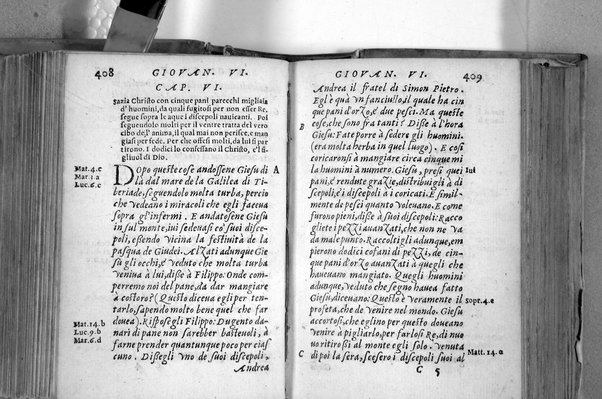 408
GIOVAN. VI.
CAP. VI.
Sazia Christo con cinque pani parecchi migliaia
d'huomini, da quali fugitosi per non esser Re,
segue sopra le aque i discepoli nauicanti. Poi
seguendolo molti per il ventre tratta del vero
cibo del'anima, il qual mai non perisce, e man
giasi per fede. Per che offesi molti, da lui si par
tirono. I dodici lo confessano il Christo, e'l fi-
gliuol di Dio.
Mat.4.c
Mar.1.a
Luc.6.c
Dopo queste cose andossene Giesu di A
là dal mare de la Galilea di Ti-
beriade, seguendolo molta turba, percio
che vedeano i miracoli che egli faceua
sopra gl'infermi. E andatosene Giesu
in sul monte, iui sedeuasi co' suoi disce-
poli, essendo vicina la festiuità de la
pasqua de Giudei. Alzati adunque Gie
su gli occhi, e veduto che molta turba
venina à lui, diße à Filippo: Onde com-
perremo noi del pane, da dar mangiare
à costoro? (Questo diceua egli per ten-
tarlo, sapendo molto bene quel che far
douea). Risposegli Filippo: Dugento da-
nari di pane non sarebber basteuoli, à
farne prender quantunque poco per cias
cuno. Dißegli vno de suoi discepoli,
Mat.14.b
Luc.9.b
Mar.6.d
Andrea
GIOVAN. VI.
409
Andrea il fratel di Simon Pietro.
Egl'è quà vn fanciullo, il quale ha cin
que pani d'orzo, e due pesci. Ma queste
cose, che sono fra tanti? Diße à l'hora
B
Giesu: Fate porre à sedere gli huomini
(era molta herba in quel luogo). E cosi
coricaronsi à mangiare circa cinque mi
la huomini à numero. Giesu, presi quei
pani, e rendute grazie, distribuigli à di
scepoli, e i discepoli à i coricati. E simil-
mente de pesci quanto voleuano. E come
furono pieni, diße à suoi discepoli: Racco
gliete i pezzi auanzati, che non ne va
da male punto. Raccoltigli adunque, em
pierono dodici cofani di pezzi, de cin-
que pani d'orzo auanzati à quegli che
haueuano mangiato. Quegli huomini
adunque, veduto che segno hauea fatto
Giesu, diceuano: Questo è veramente il
profeta, che de venire nel mondo. Giesu
accortosi, che eglino per questo doueano
venire à pigliarlo, per farlosi Re, di nuo
uo ritirossi al monte egli solo. Venuta
C di poi la sera, scesero i discepoli suoi al
Iui
Sopr.4.e
Matt.14.a
C 5